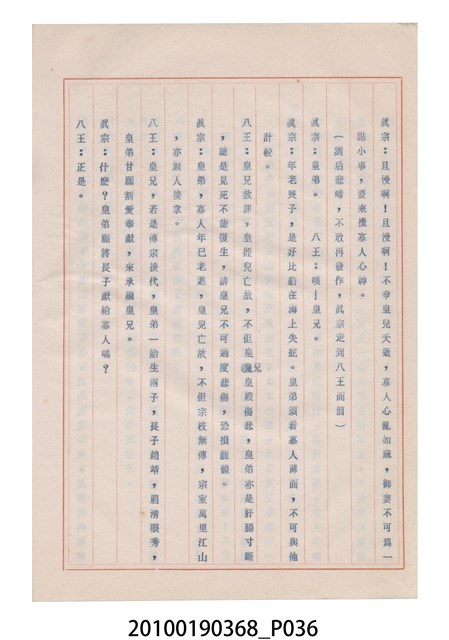 眞宗：且慢啊！且慢啊！不幸皇兒夭逝，寡人心亂如麻，御妻不可爲一
點小事，要來攪寡人心神。
（潤后悲啼，不敢再發作，眞宗走到八王面前）
眞宗：皇弟。　八王：噢！皇兄。
眞宗：年老喪子，是好比船在海上失舵。皇弟須看寡人薄面，不可與他
計較。
八王：皇兄敘罪，皇姪兒亡故，不但皇兄皇嫂傷悲，皇弟亦是肝腸寸斷
，總是見死不能復生，請皇兄不可過度悲傷，恐損龍儀。
眞宗：皇弟，寡人年已老邁，皇兒亡故，不但宗枝無傳，宗室萬里江山
，亦無人接掌。
八王：皇兄，若是傳宗後代，皇弟一胎生兩子，長子趙靖，眉清眼秀，
皇弟甘願割愛奉獻，來承繼皇兄。
眞宗：什麽？皇弟願將長子獻給寡人嗎？
八王：正是。
20100190368_P036